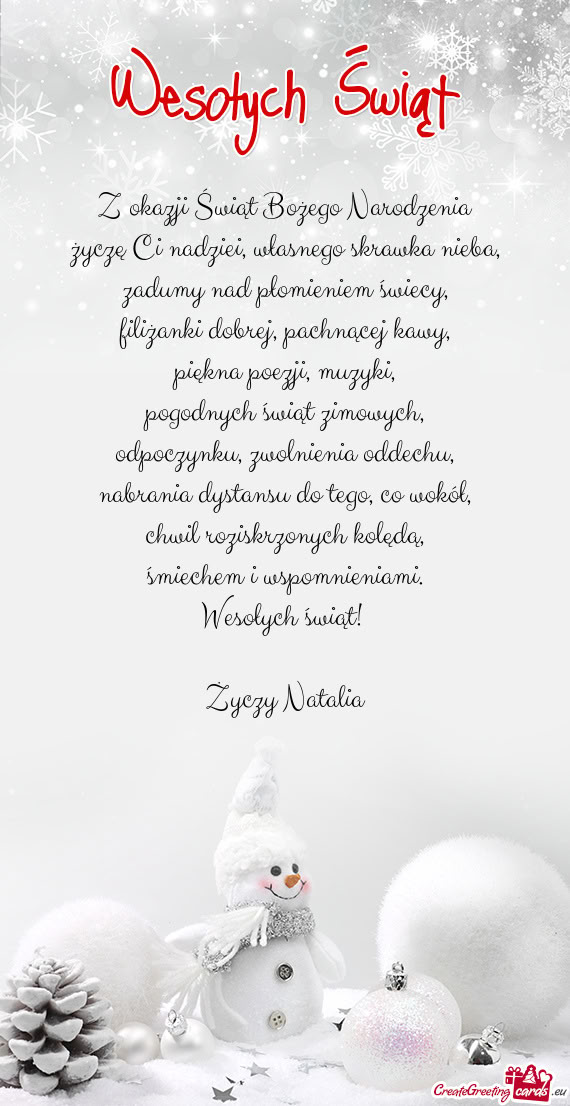 Wesołych Świąt
Z okazji Świąt Bożego Narodzenia
życzę Ci nadziei, własnego skrawka nieba,
zadumy nad płomieniem świecy,
filiżanki dobrej, pachnącej kawy,
piękna poezji, muzyki,
pogodnych świąt zimowych,
odpoczynku, zwolnienia oddechu,
nabrania dystansu do tego, co wokół,
chwil roziskrzonych kolędą,
śmiechem i wspomnieniami.
Wesołych świąt!
Życzy Natalia
CreateGreetingcards.eu